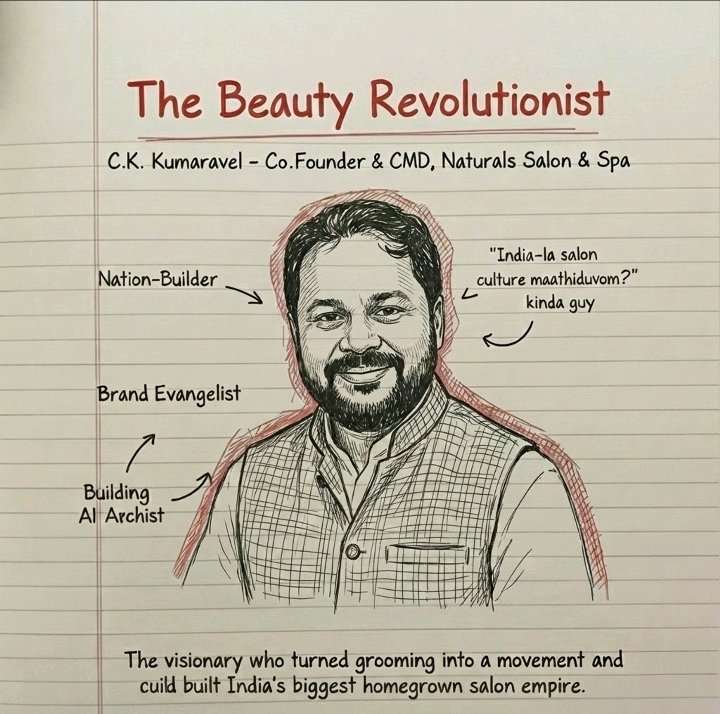 The Beauty Revolutionist
C.K. Kumaravel – Co.Founder & CMD, Naturals Salon & Spa
Nation-Builder
"India-la salon
culture maathiduvom?"
kinda guy
Brand Evangelist
Building
AI Archist
The visionary who turned grooming into a movement and
cuild built India's biggest homegrown salon empire.